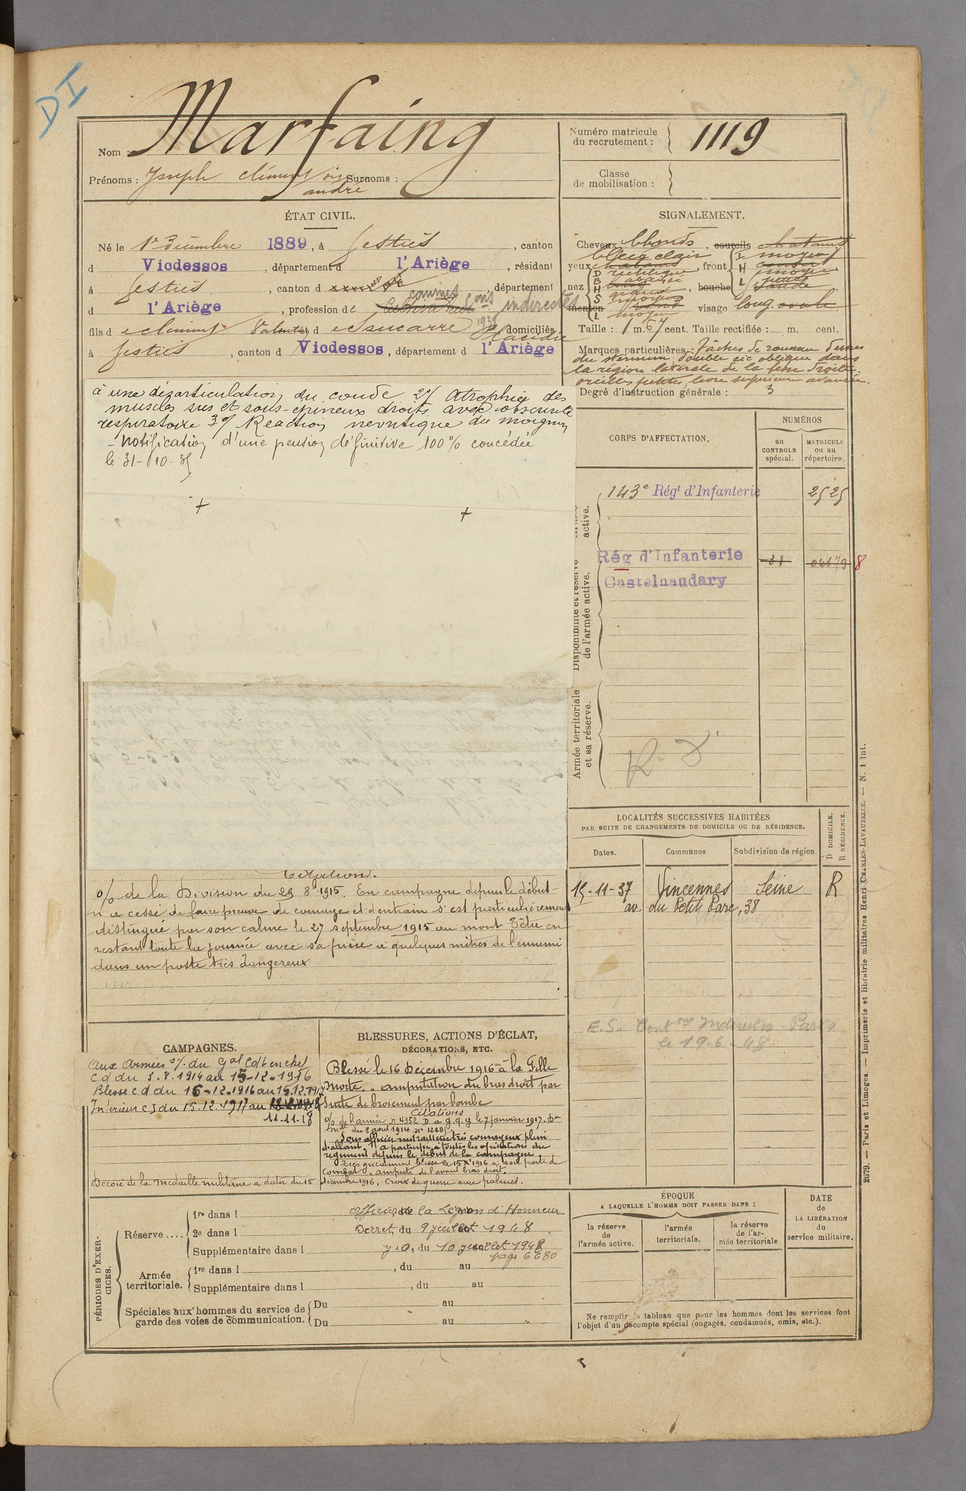 DI
Nom : Marfaing
Prénoms : Joseph Clément Surnoms :
andré
Numéro matricule
du recrutement : 1119
Classe
de mobilisation :
ÉTAT CIVIL.
Né le 1er Décembre 1889, à Gestiès, canton
d Vicdessos, département d l'Ariège, résidant
à Gestiès, canton d , département
d l'Ariège, profession de commis Cons indirectes
fils d e Clément et d domiciliés
à Gestiès, canton d Vicdessos, département d l'Ariège
SIGNALEMENT.
Cheveux blonds, sourcils chatains
yeux bleu clair front moyen
nez rectiligne, bouche
menton visage long ovale
Taille : 1 m. 67 cent. Taille rectifiée : m. cent.
Marques particulières : Tâches de rousseur
du sternum, double cic oblique dans
la région laterale de la fesse droite,
oreilles petites, levre superieure
Degré d'instruction générale : 3
à une désarticulation du coude 2% Atrophie des
muscles sus et sous-épineux droits avec obscurité
respiratoire 3% Reaction nevritique du moignon
- Notification d'une pension définitive 100% concédée
le 31-10-35
CORPS D'AFFECTATION.
NUMÉROS
au
CONTROLE
spécial.
MATRICULE
ou au
répertoire.
active.
143e Régt d'Infanterie 2525
Disponibilité et réserve
de l'armée active.
Rég d'Infanterie
Castelnaudary
Armée territoriale
et sa réserve.
R. D.
LOCALITÉS SUCCESSIVES HABITÉES
PAR SUITE DE CHANGEMENTS DE DOMICILE OU DE RÉSIDENCE.
Dates. Communes Subdivision de région
D DOMICILE.
R RÉSIDENCE.
15-11-37 Vincennes Seine R
av. du Petit Parc, 38
E.S. Contons Indirectes Paris
le 19-6-48
Citations.
o/ de la Division du 29 8 1915. En campagne depuis le début
n'a cessé de faire preuve de courage et d'entrain s'est particulièrement
distingué par son calme le 27 septembre 1915 au mont Têtu en
restant toute la journée avec sa pièce à quelques mètres de l'ennemi
dans un poste très dangereux
CAMPAGNES.
Aux Armées s/. du Gal Cdt en chef
C d du 3.8.1914 au 15-12-1916
Blessé C d du 16-12-1916 au 15.12.1917
Intérieur C s du 15.12.1917 au
11.11.18
Décoré de la Medaille militaire à dater du 15 décembre 1916, Croix de guerre avec palmes.
BLESSURES, ACTIONS D'ÉCLAT,
DÉCORATIONS, ETC.
Blessé le 16 Décembre 1916 à la Fille
Morte, amputation du bras droit par
suite de broiement par bombe
Citations
o/ de l'armée n° 4352 D. G.Q.G. le 7 janvier 1917.
du 8 aout 1914
Sous officier mitrailleur très courageux plein
d'allant, a participé à toutes les opérations du
régiment depuis le début de la campagne.
Très grièvement blessé le 15 Xbre 1916 à son poste de
combat. amputé de l'avant bras droit.
PÉRIODES D'EXERCICES.
Réserve.....
1re dans l officier de la Légion d'Honneur
2e dans l Decret du 9 juillet 1948
Supplémentaire dans l J.O. du 10 juillet 1948
page 6680
Armée
territoriale.
1re dans l , du au
Supplémentaire dans l , du au
Spéciales aux hommes du service de
garde des voies de communication.
Du au
Du au
ÉPOQUE
A LAQUELLE L'HOMME DOIT PASSER DANS :
la réserve
de
l'armée active.
l'armée
territoriale.
la réserve
de l'ar-
mée territoriale
DATE
de
LA LIBÉRATION
du
service militaire.
Ne remplir le tableau que pour les hommes dont les services font
l'objet d'un décompte spécial (engagés, condamnés, omis, etc.).
2679. — Paris et Limoges. — Imprimerie et librairie militaires Henri CHARLES-LAVAUZELLE. — N. 1 int.